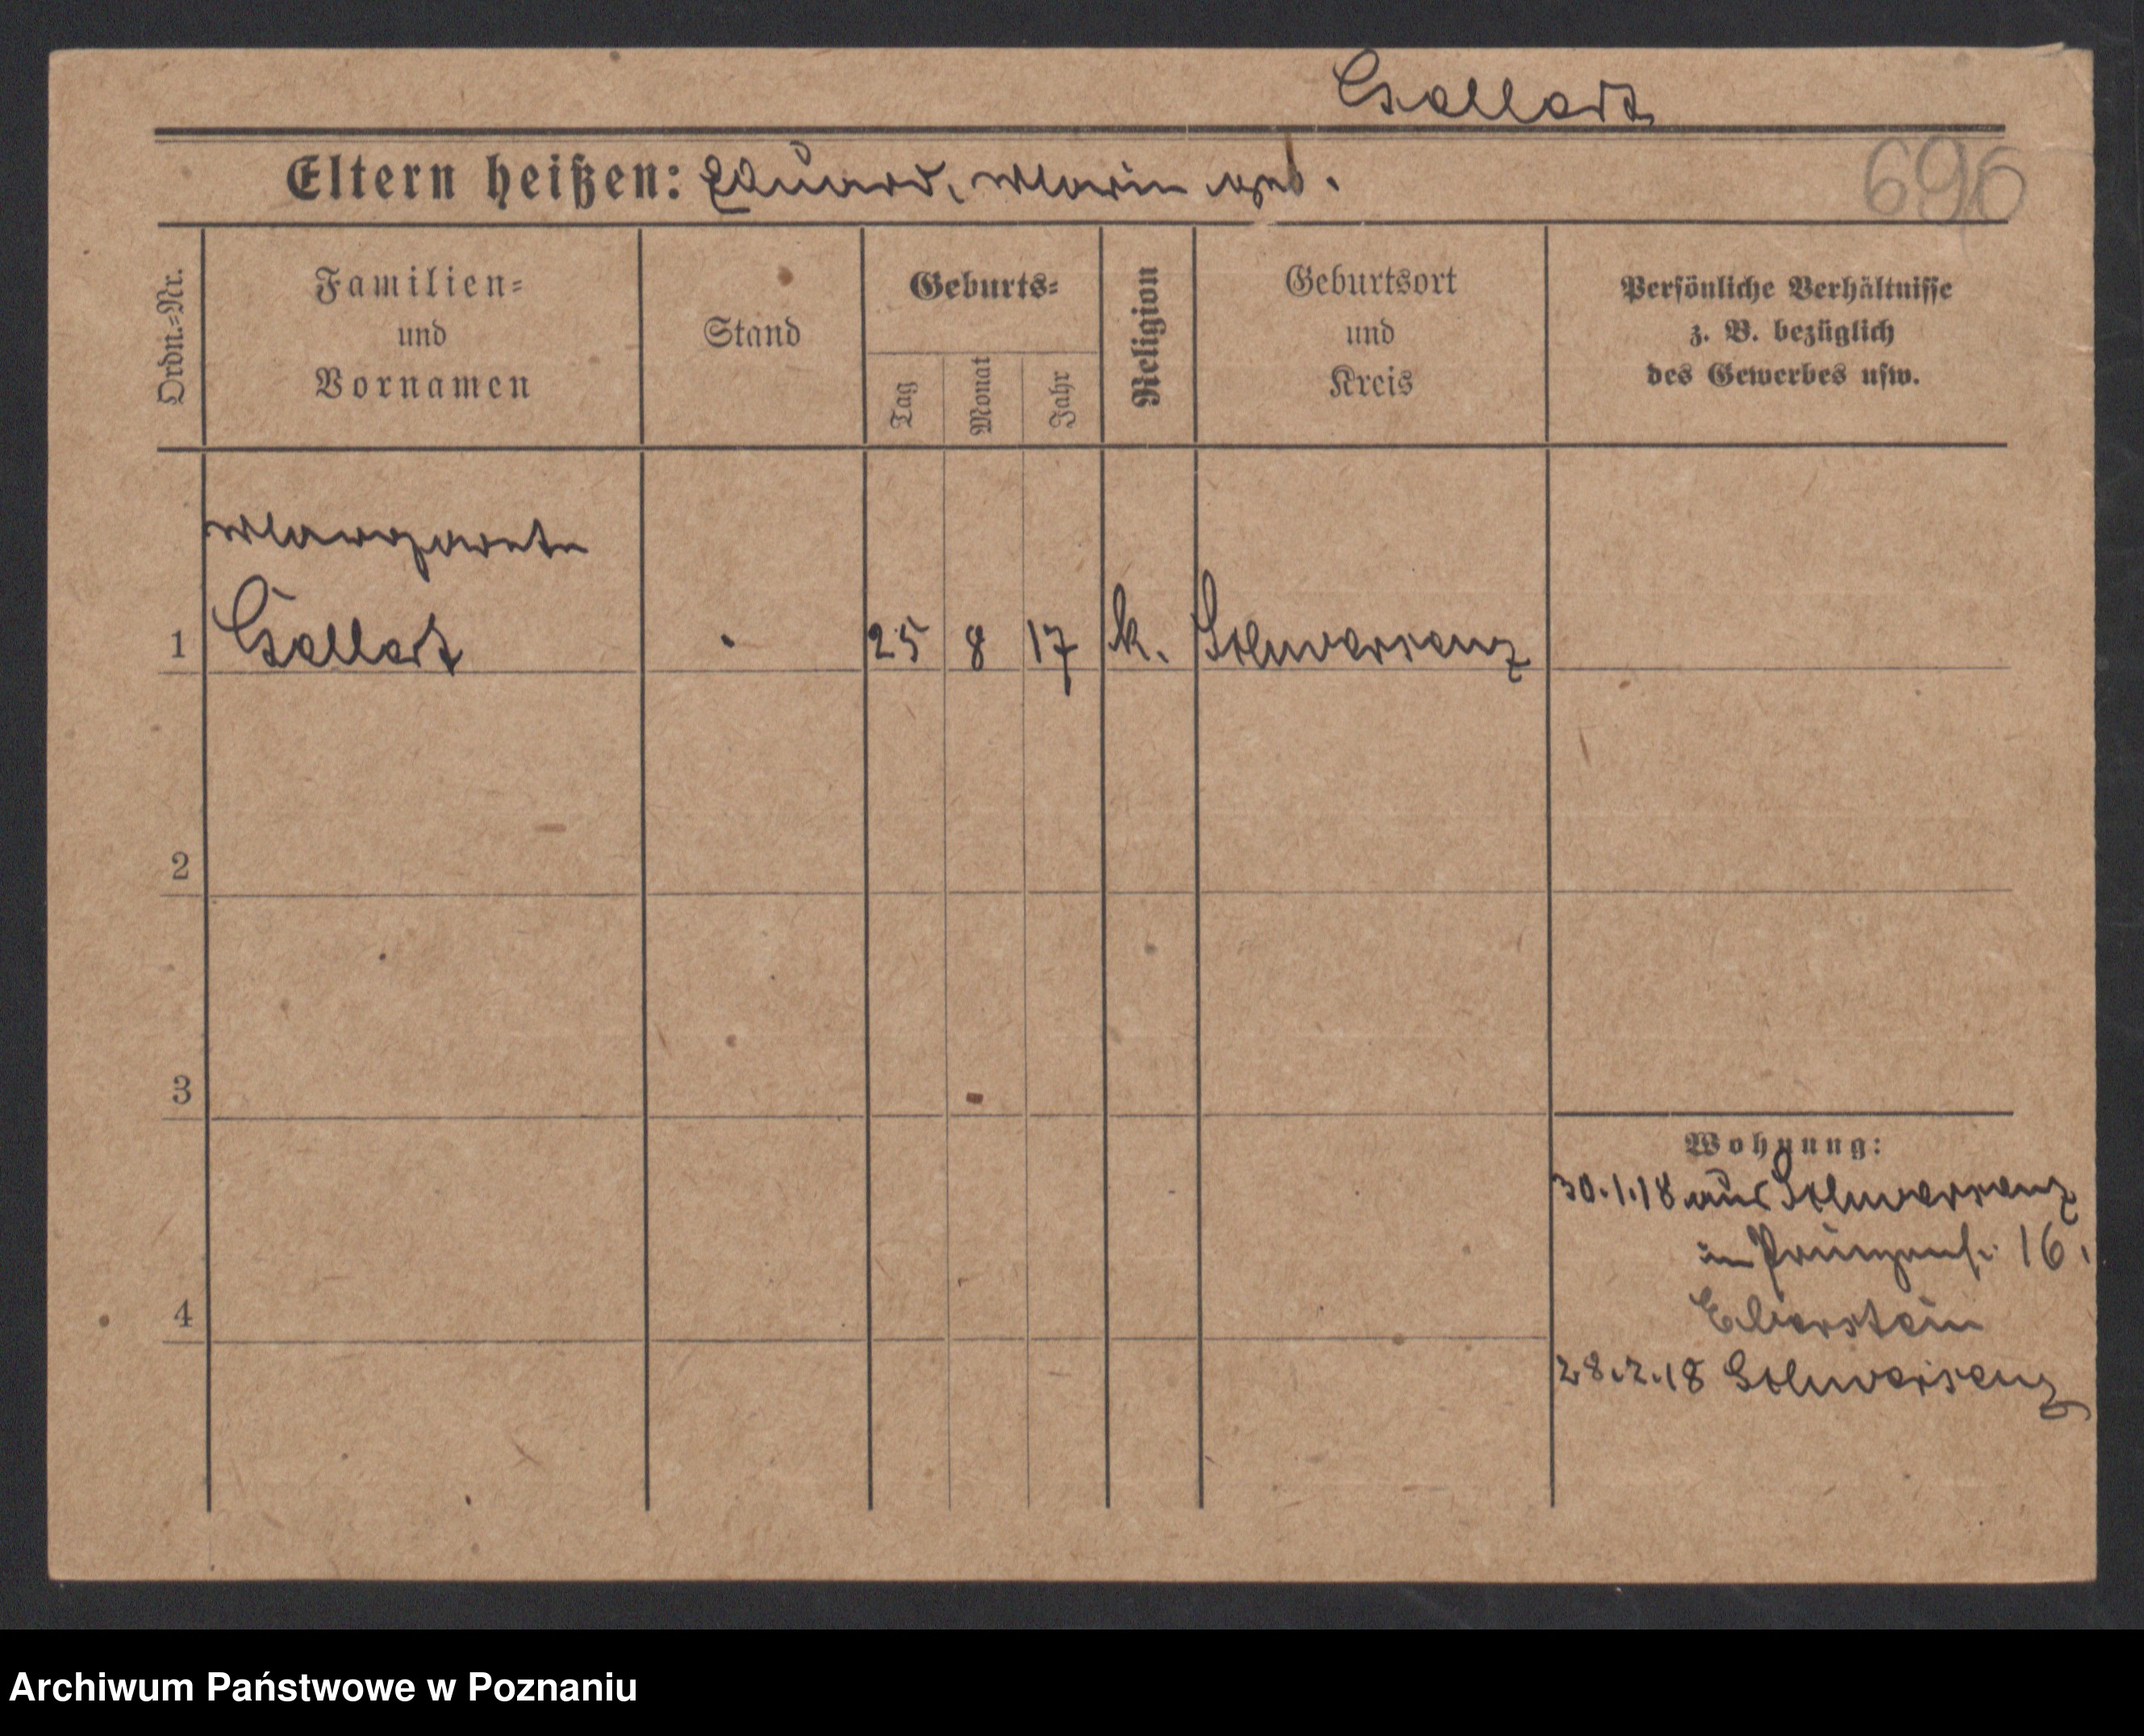 Csallart
Eltern heißen: Eduard, Marie geb.
696
Ordn.=Nr.
Familien=
und
Vornamen
Stand
Geburts=
Tag
Monat
Jahr
Religion
Geburtsort
und
Kreis
Persönliche Verhältnisse
z. B. bezüglich
des Gewerbes usw.
Margarete
1 Csallart . 25 8 17 k. Schwersenz
2
3
4
Wohnung:
30.1.18 aus Schwersenz
in 16.
Eberstein
28.2.18 Schwersenz
Archiwum Państwowe w Poznaniu